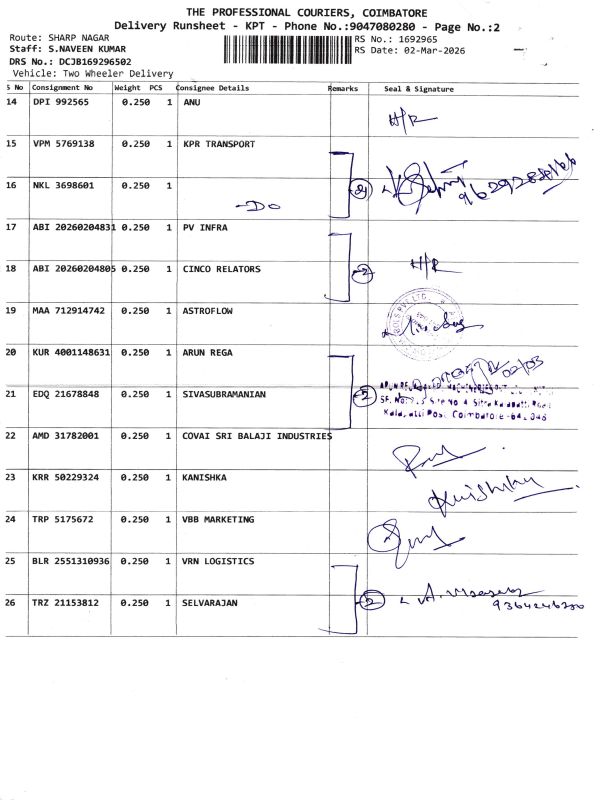 THE PROFESSIONAL COURIERS, COIMBATORE
Delivery Runsheet - KPT - Phone No.:9047080280 - Page No.:2
Route: SHARP NAGAR
RS No.: 1692965
Staff: S.NAVEEN KUMAR
RS Date: 02-Mar-2026
DRS No.: DCJB169296502
Vehicle: Two Wheeler Delivery
S No Consignment No Weight PCS Consignee Details Remarks Seal & Signature
14 DPI 992565 0.250 1 ANU H/R
15 VPM 5769138 0.250 1 KPR TRANSPORT
16 NKL 3698601 0.250 1 -DO 2
17 ABI 20260204831 0.250 1 PV INFRA
18 ABI 20260204805 0.250 1 CINCO RELATORS 2 H/R
19 MAA 712914742 0.250 1 ASTROFLOW
20 KUR 4001148631 0.250 1 ARUN REGA 02/03
21 EDQ 21678848 0.250 1 SIVASUBRAMANIAN 2
Coimbatore-641 048
22 AMD 31782001 0.250 1 COVAI SRI BALAJI INDUSTRIES
23 KRR 50229324 0.250 1 KANISHKA Kanishka
24 TRP 5175672 0.250 1 VBB MARKETING
25 BLR 2551310936 0.250 1 VRN LOGISTICS
26 TRZ 21153812 0.250 1 SELVARAJAN 2